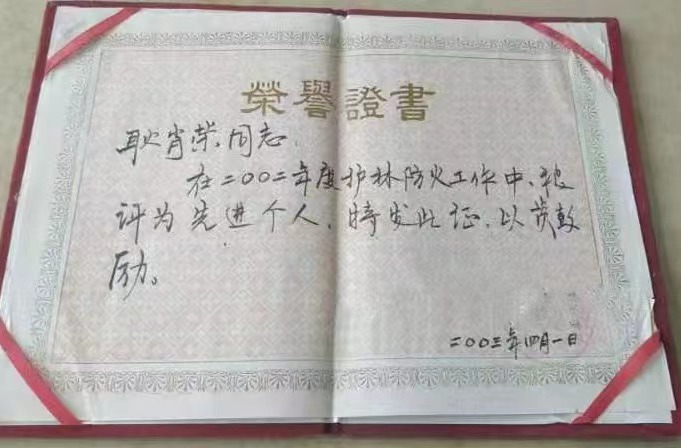 榮譽證書
耿肖荣同志:
在二〇〇二年度护林防火工作中,被
评为先进个人,特发此证,以资鼓
励。
二〇〇三年四月一日